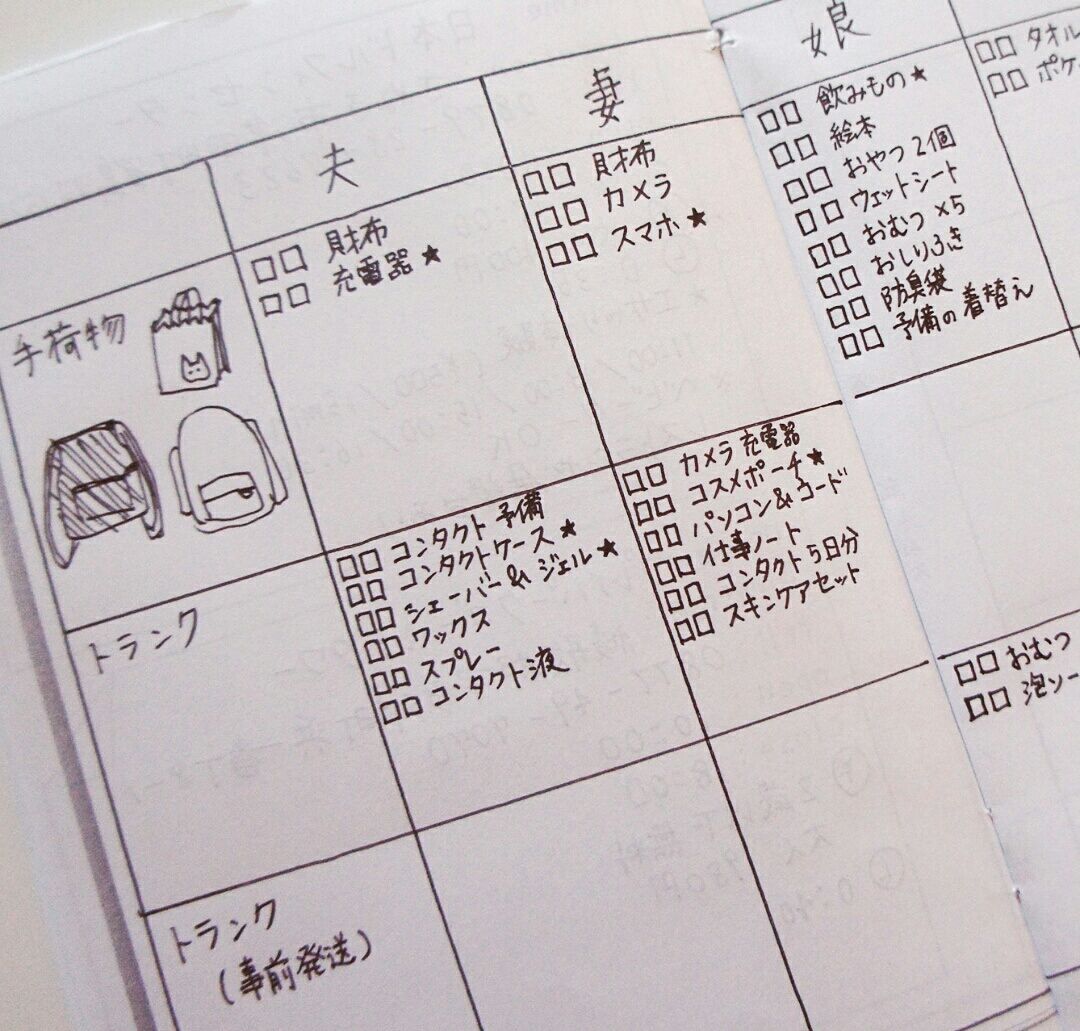 夫
妻
娘
手荷物
□□ 財布
□□ 充電器 ★
□□ 財布
□□ カメラ
□□ スマホ ★
□□ 飲みもの ★
□□ 絵本
□□ おやつ 2個
□□ ウェットシート
□□ おむつ ×5
□□ おしりふき
□□ 防臭袋
□□ 予備の着替え
□□ タオル
□□ ポケ
トランク
□□ コンタクト予備
□□ コンタクトケース ★
□□ シェーバー & ジェル ★
□□ ワックス
□□ スプレー
□□ コンタクト液
□□ カメラ充電器
□□ コスメポーチ ★
□□ パソコン & コード
□□ 仕事ノート
□□ コンタクト5日分
□□ スキンケアセット
□□ おむつ
□□ 泡ソー
トランク
(事前発送)